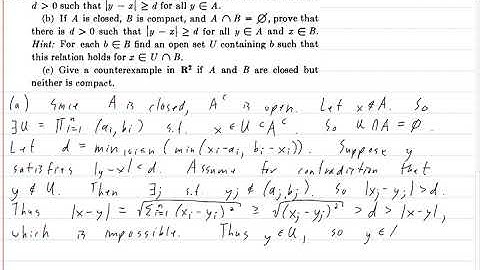 d > 0 such that |y − z| ≥ d for all y ∈ A.
(b) If A is closed, B is compact, and A ∩ B = ∅, prove that
there is d > 0 such that |y − x| ≥ d for all y ∈ A and x ∈ B.
Hint: For each b ∈ B find an open set U containing b such that
this relation holds for x ∈ U ∩ B.
(c) Give a counterexample in R² if A and B are closed but
neither is compact.
(a) Since A is closed, Aᶜ is open. Let x ∉ A. So
∃U = ∏ᵢ₌₁ⁿ (aᵢ, bᵢ) s.t. x ∈ U ⊂ Aᶜ. So U ∩ A = ∅.
Let d = min₁≤ᵢ≤ₙ (min(xᵢ-aᵢ, bᵢ-xᵢ)). Suppose y
satisfies |y-x| < d. Assume for contradiction that
y ∉ U. Then ∃j s.t. yⱼ ∉ (aⱼ, bⱼ). So |xⱼ-yⱼ| > d.
Thus |x-y| = √(Σᵢ₌₁ⁿ (xᵢ-yᵢ)²) ≥ √((xⱼ-yⱼ)²) > d > |x-y|,
which is impossible. Thus y ∈ U, so y ∉